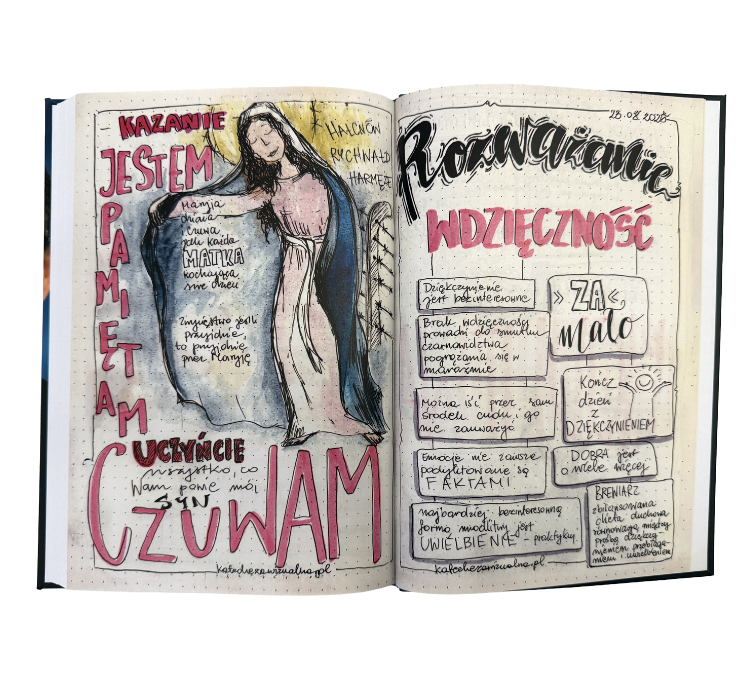 KAZANIE
JESTEM
PAMIĘTAM
HAŁCNÓW
RYCHWAŁD
HARMĘŻE
Maryja
działa
czuwa
jak każda
MATKA
kochająca
swe dzieci
Zwycięstwo jeśli
przyjdzie,
to przyjdzie
przez Maryję
UCZYŃCIE
wszystko, co
Wam powie mój
SYN
CZUWAM
katechezawizualna.pl
28.08.2023
Rozważanie
WDZIĘCZNOŚĆ
Dziękczynienie
jest bezinteresowne
Brak wdzięczności
prowadzi do smutku
czarnowidztwa
pogrążania się w
marazmie
Można iść przez sam
środek cudu i go
nie zauważyć
Emocje nie zawsze
podyktowane są
FAKTAMI
najbardziej bezinteresowną
formą modlitwy jest
UWIELBIENIE - praktykuj
» ZA «
mało
Kończ
dzień
z
DZIĘKCZYNIENIEM
DOBRA jest
o wiele więcej
BREWIARZ
zbilansowana
dieta duchowa
równowaga między
prośbą dziękczy-
nieniem przebłaga-
niem i uwielbieniem
katechezawizualna.pl